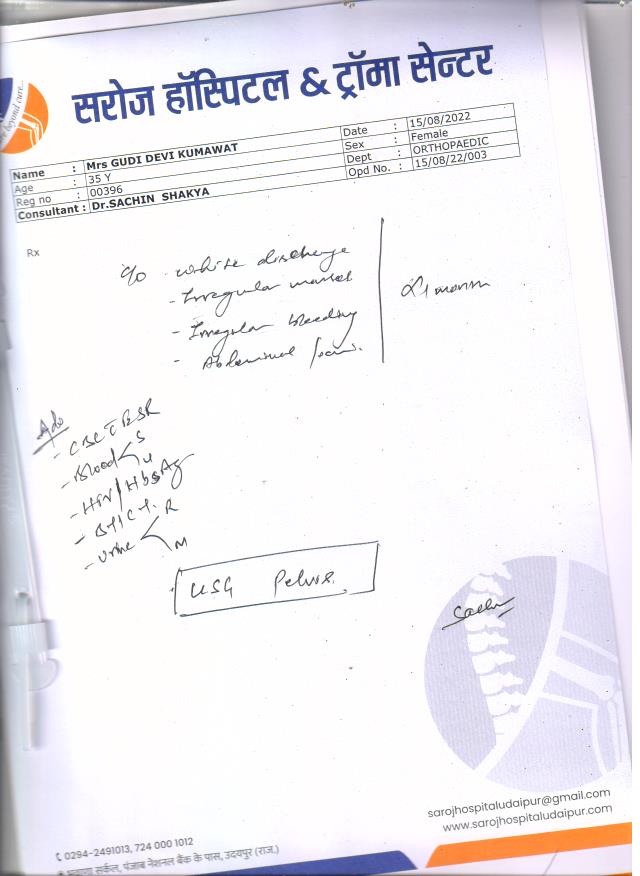 beyond cure...
सरोज हॉस्पिटल & ट्रॉमा सेन्टर
Name : Mrs GUDI DEVI KUMAWAT
Age : 35 Y
Reg no : 00396
Consultant : Dr.SACHIN SHAKYA
Date : 15/08/2022
Sex : Female
Dept : ORTHOPAEDIC
Opd No. : 15/08/22/003
Rx
c/o white discharge
- Irregular
- Irregular bleeding
- Abdominal pain.
Adv
- CBC ESR
- Blood S
U
- HIV/HbsAg
- BT/CT.
- Urine R
M
USG Pelvis.
sarojhospitaludaipur@gmail.com
www.sarojhospitaludaipur.com
0294-2491013, 724 000 1012
सर्कल, पंजाब नेशनल बैंक के पास, उदयपुर (राज.)